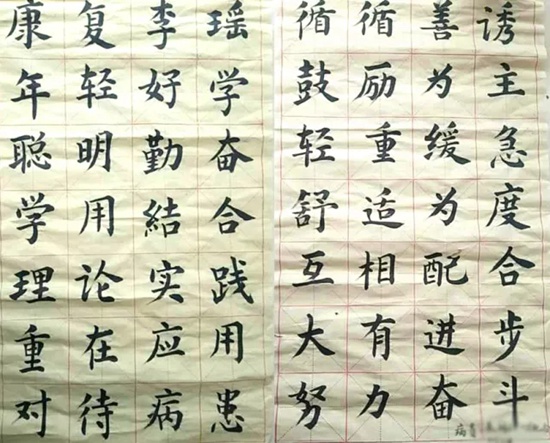 康复李瑶
年轻好学
聪明勤奋
学用結合
理论实践
重在应用
对待病患
循循善诱
鼓励为主
轻重缓急
舒适为度
互相配合
大有进步
努力奋斗